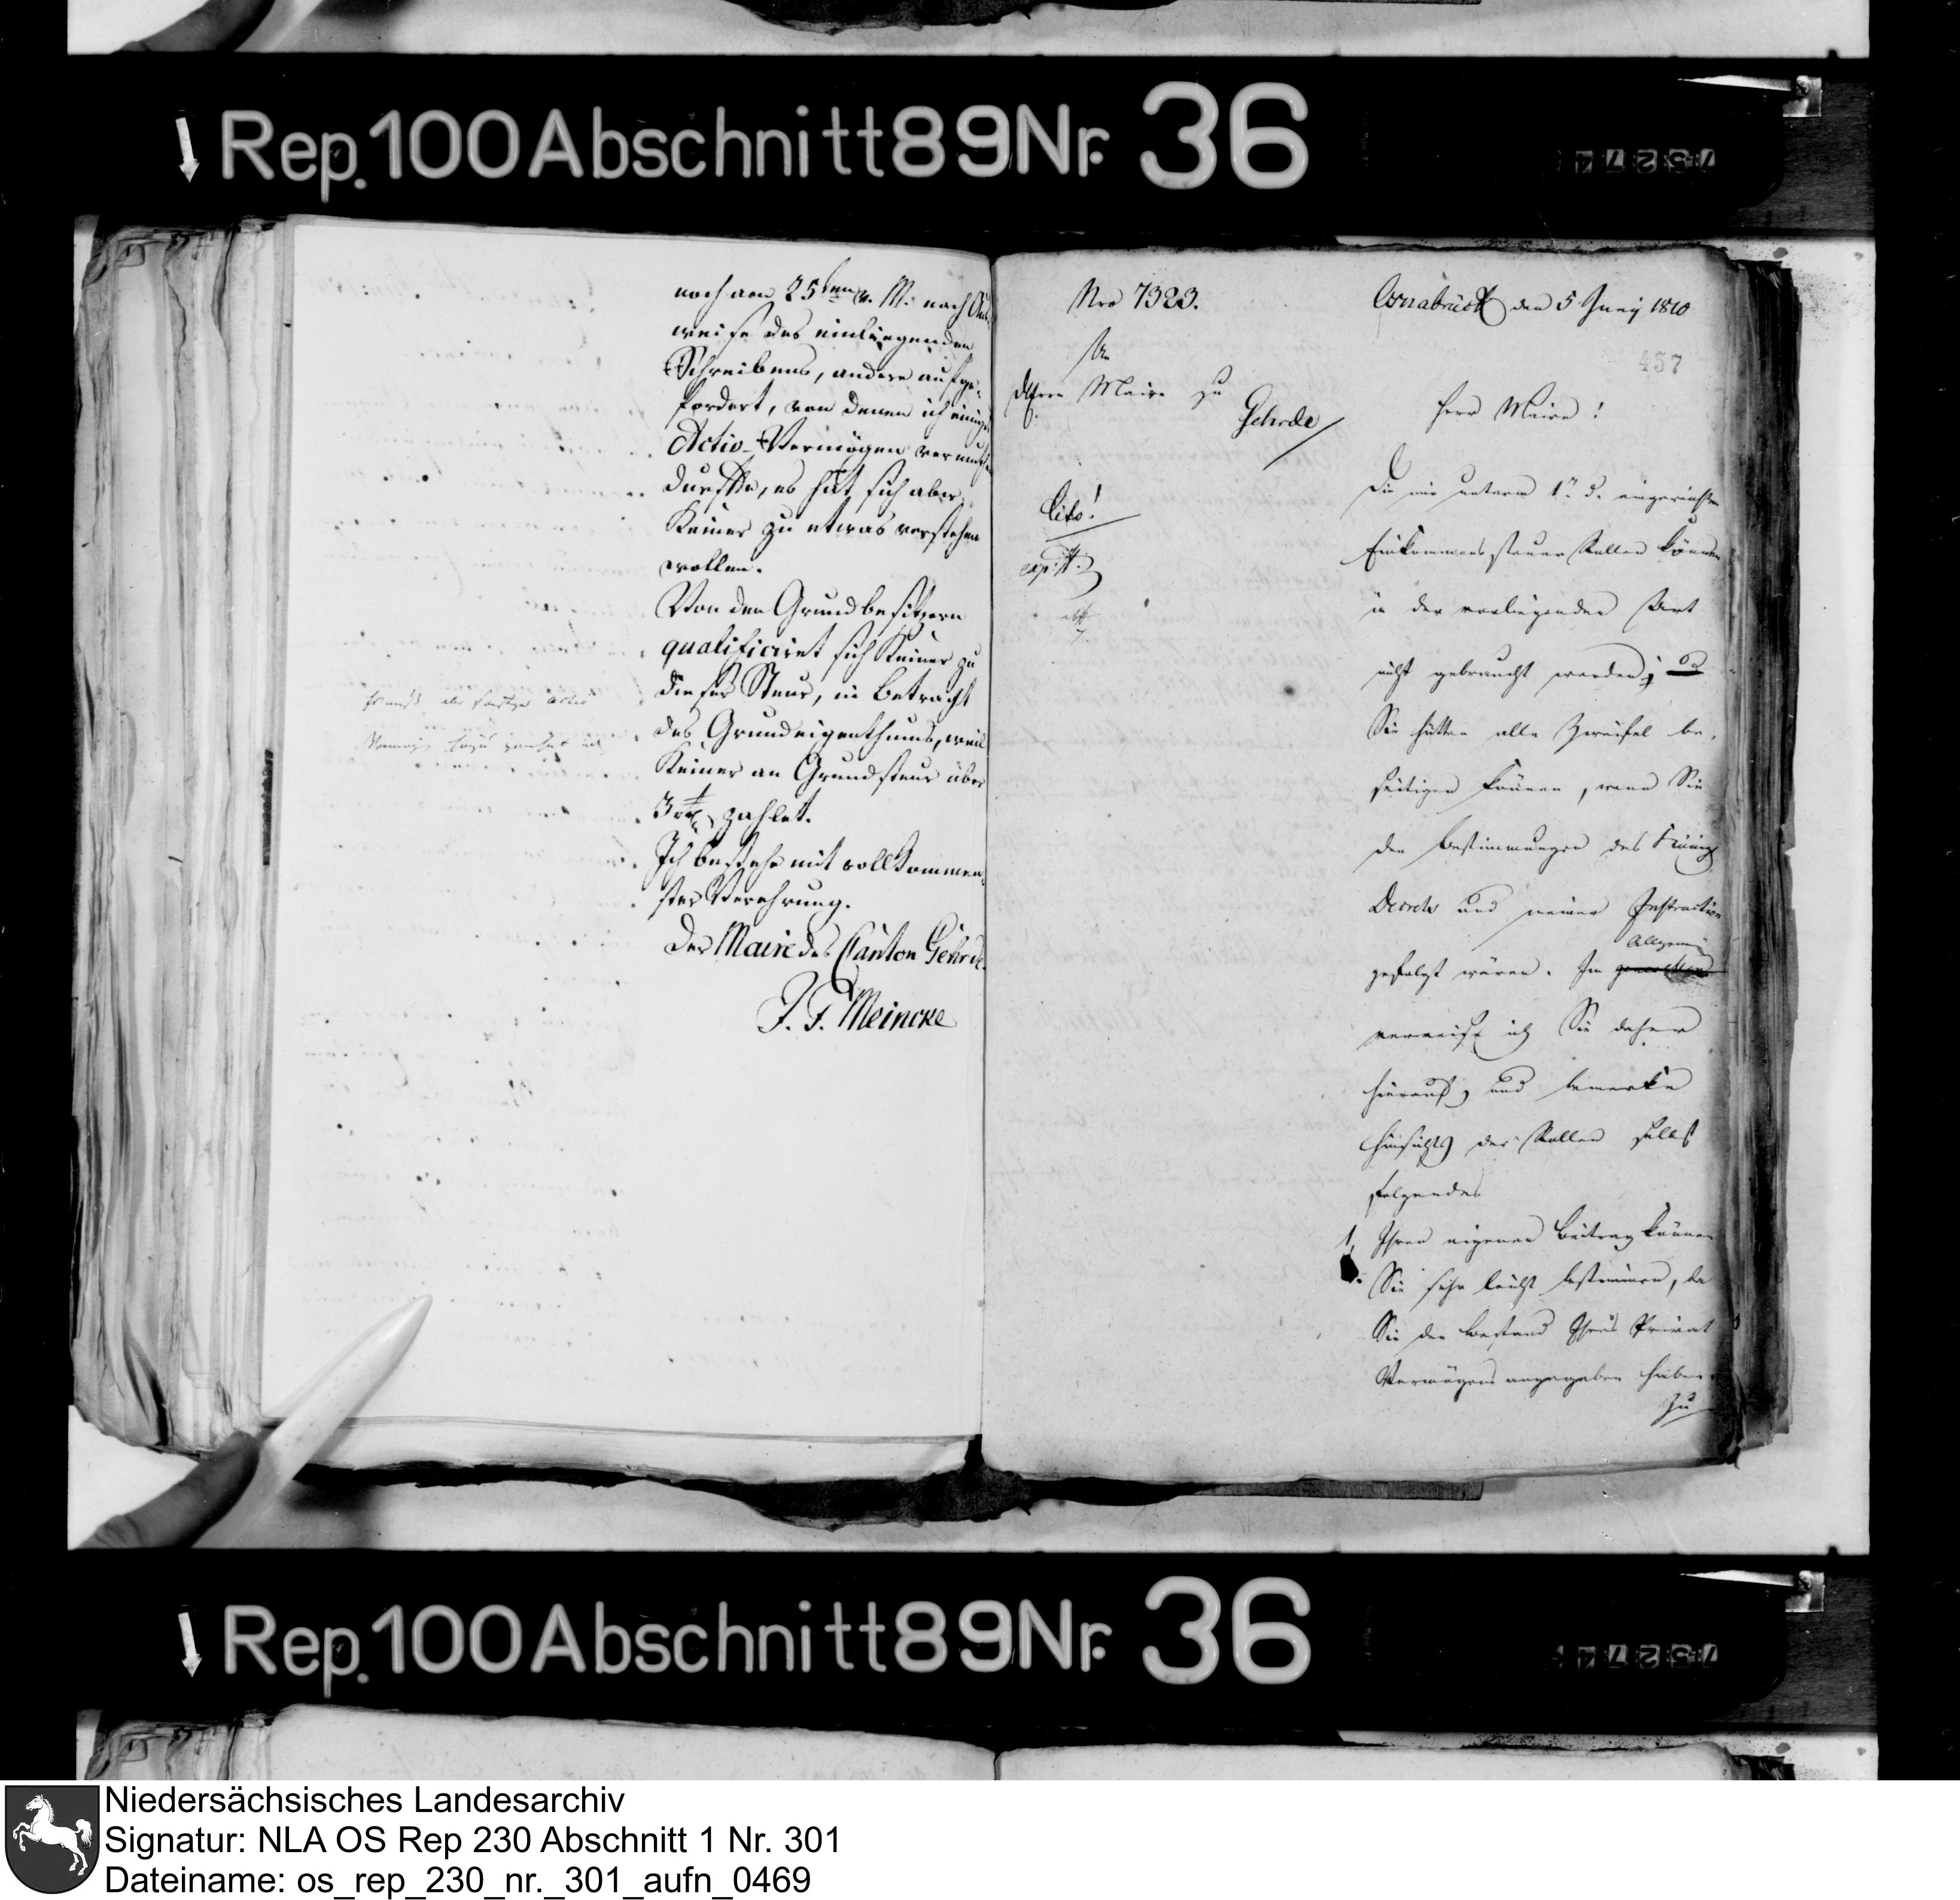 Rep.100Abschnitt89Nr. 36
75274
noch am 25ten v. M. nach Aus-
weise des einliegenden
Schreibens, andere aufge-
fordert, von denen ich einiges
Activ-Vermögen vermuthen
durfte, es hat sich aber
Keiner zu etwas verstehen
wollen.
Von den Grundbesitzern
qualificiret sich Keiner zu
dieser Steur, in Betracht
des Grundeigenthums, weil
Keiner an Grundsteur über
3 zahlet.
Ich bestehe mit vollkommen-
ster Verehrung.
Der Maire des Canton Gehrde.
J. F. Meincke
Nro 7323.
An
Herrn Maire zu
Gehrde
Cito!
Osnabrück den 5 Juny 1810
457
Herr Maire!
Die mir unterm 1n d. eingereichten
Einkommenssteuer Rollen können
in der vorliegenden Art
nicht gebraucht werden;
Sie hätten alle Zweifel be-
seitigen können, wenn Sie
den Bestimmungen des Königl
Decrets und meiner Instruction
Allgemein
gefolgt wären. Im
verweise ich Sie daher
hierauf, und bemerke
hinsichts der Rollen selbst
folgendes
1, Ihren eigenen Beitrag können
Sie sehr leicht bestimmen, da
Sie den Bestand Ihres Privat
Vermögens angegeben haben.
Zu
Rep.100Abschnitt89Nr. 36
75274
Niedersächsisches Landesarchiv
Signatur: NLA OS Rep 230 Abschnitt 1 Nr. 301
Dateiname: os_rep_230_nr._301_aufn_0469